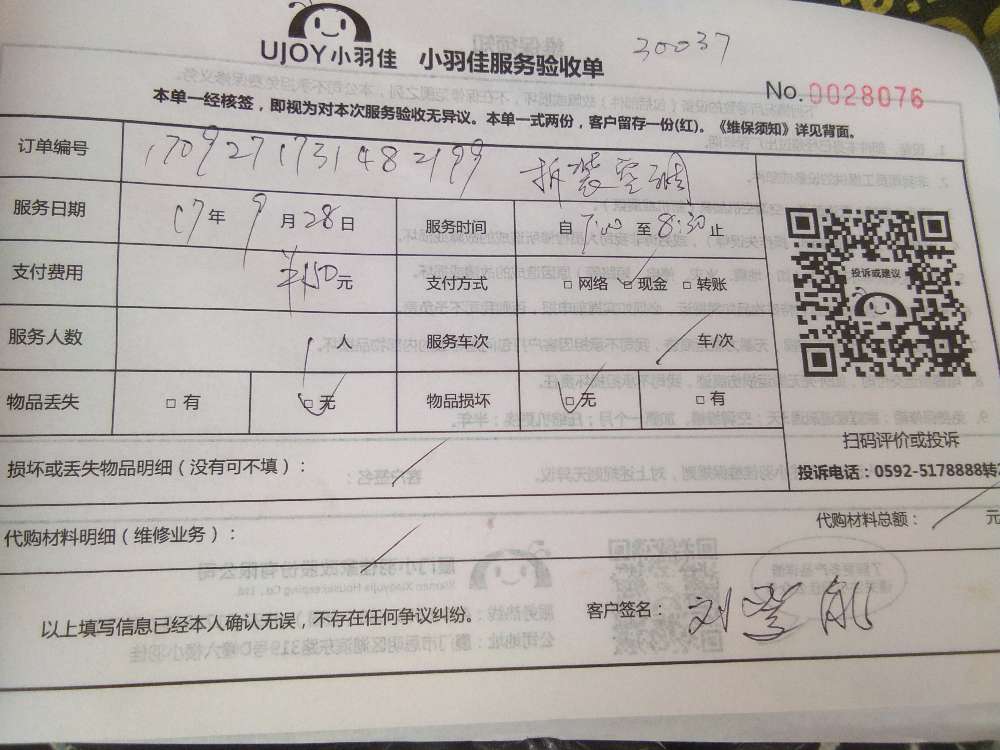 UJOY小羽佳 小羽佳服务验收单 30037
No.0028076
本单一经核签，即视为对本次服务验收无异议。本单一式两份，客户留存一份(红)。《维保须知》详见背面。
订单编号 1709271731482199 拆装空调
服务日期 17年 9月28日 服务时间 自7:00至8:30止
支付费用 150元 支付方式 □网络 □现金 □转账
投诉或建议
服务人数 1 服务车次 车/次
物品丢失 □有 □无 物品损坏 □无 □有
扫码评价或投诉
损坏或丢失物品明细（没有可不填）：
投诉电话：0592-5178888转
代购材料明细（维修业务）：
代购材料总额： 元
以上填写信息已经本人确认无误，不存在任何争议纠纷。
客户签名：刘